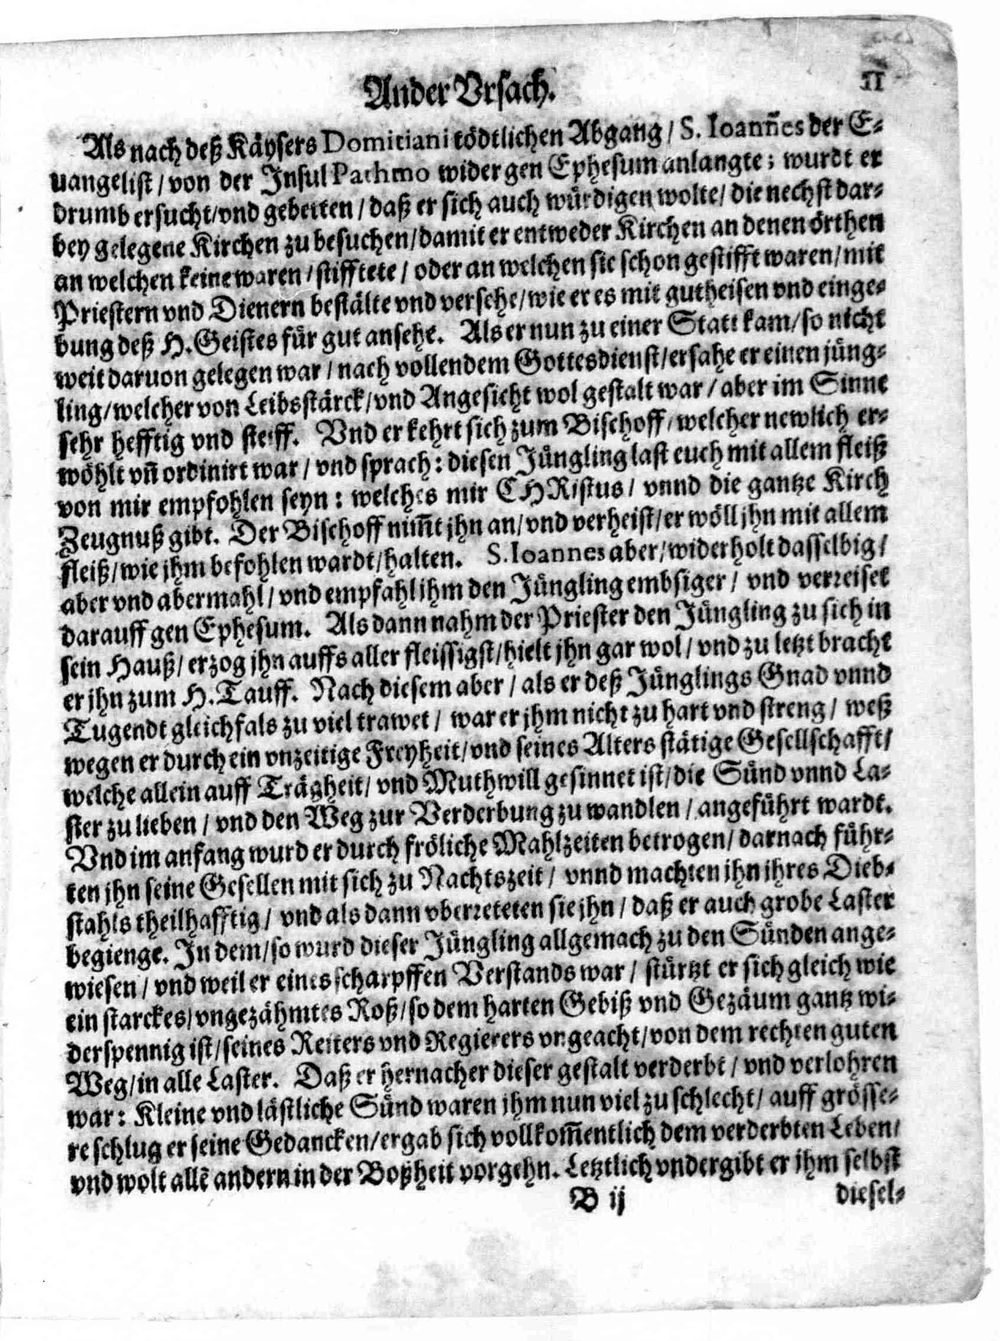 Ander Vrsach.
11
Als nach deß Käysers Domitiani tödtlichen Abgang / S. Ioañes der E-
uangelist / von der Insul Pathmo wider gen Ephesum anlangte; wurdt er
drumb ersucht / vnd gebetten / daß er sich auch würdigen wolte / die nechst dar-
bey gelegene Kirchen zu besuchen / damit er entweder Kirchen an denen örthen
an welchen keine waren / stifftete / oder an welchen sie schon gestifft waren / mit
Priestern vnd Dienern bestälte vnd versehe / wie er es mit gutheisen vnd einge-
bung deß H. Geistes für gut ansehe. Als er nun zu einer Statt kam / so nicht
weit daruon gelegen war / nach vollendem Gottesdienst / ersahe er einen jüng-
ling / welcher von Leibsstärck / vnd Angesicht wol gestalt war / aber im Sinne
sehr hefftig vnd steiff. Vnd er kehrt sich zum Bischoff / welcher newlich er-
wöhlt vñ ordinirt war / vnd sprach: diesen Jüngling last euch mit allem fleiß
von mir empfohlen seyn: welches mir CHRistus / vnnd die gantze Kirch
Zeugnuß gibt. Der Bischoff nim̃t jhn an / vnd verheist / er wöll jhn mit allem
fleiß / wie jhm befohlen wardt / halten. S. Ioannes aber / widerholt dasselbig /
aber vnd abermahl / vnd empfahl jhm den Jüngling embsiger / vnd verreiset
darauff gen Ephesum. Als dann nahm der Priester den Jüngling zu sich in
sein Hauß / erzog jhn auffs aller fleissigst / hielt jhn gar wol / vnd zu letzt bracht
er jhn zum H. Tauff. Nach diesem aber / als er deß Jünglings Gnad vnnd
Tugendt gleichfals zu viel trawet / war er jhm nicht zu hart vnd streng / weß
wegen er durch ein vnzeitige Freyheit / vnd seines Alters stätige Gesellschafft /
welche allein auff Trägheit / vnd Muthwill gesinnet ist / die Sünd vnnd La-
ster zu lieben / vnd den Weg zur Verderbung zu wandlen / angeführt wardt.
Vnd im anfang wurd er durch fröliche Mahlzeiten betrogen / darnach führ-
ten jhn seine Gesellen mit sich zu Nachtszeit / vnnd machten jhn jhres Dieb-
stahls theilhafftig / vnd als dann vberreteten sie jhn / daß er auch grobe Laster
begienge. In dem / so wurd dieser Jüngling allgemach zu den Sünden ange-
wiesen / vnd weil er eines scharpffen Verstands war / stürtzt er sich gleich wie
ein starckes / vngezähmtes Roß / so dem harten Gebiß vnd Gezäum gantz wi-
derspennig ist / seines Reiters vnd Regierers vngeacht / von dem rechten guten
Weg / in alle Laster. Daß er hernacher dieser gestalt verderbt / vnd verlohren
war: Kleine vnd lästliche Sünd waren jhm nun viel zu schlecht / auff grösse-
re schlug er seine Gedancken / ergab sich vollkom̃entlich dem verderbten Leben /
vnd wolt allẽ andern in der Boßheit vorgehn. Letztlich vndergibt er jhm selbst
B ij
diesel-